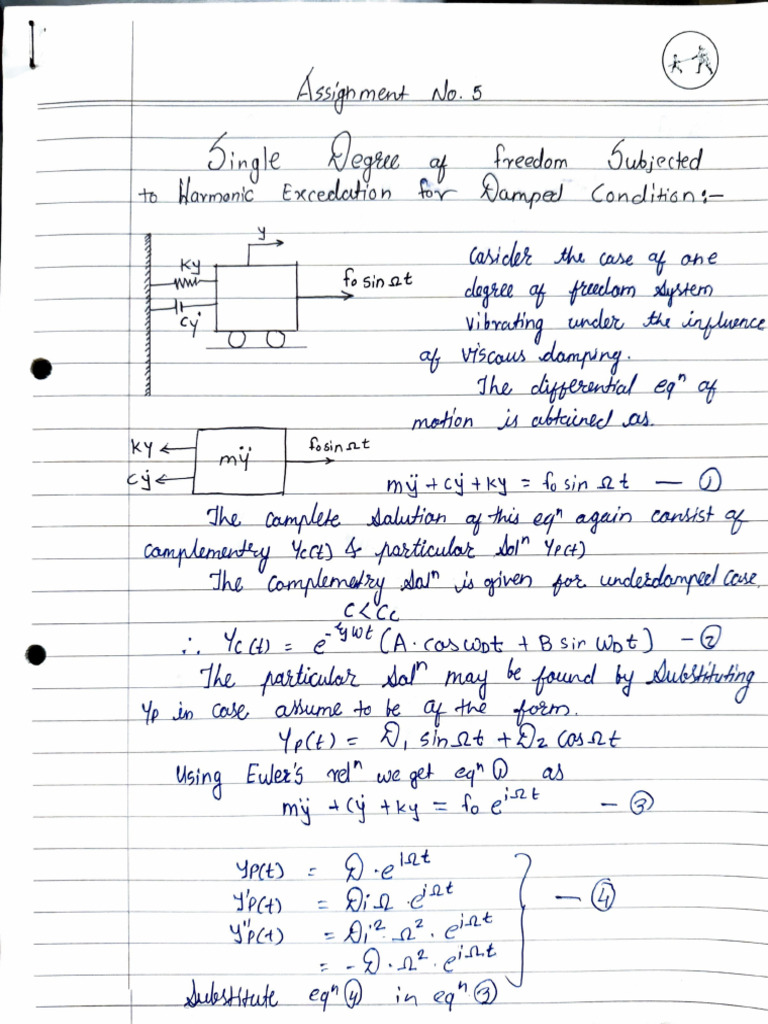 Assignment No. 5
Single Degree of freedom Subjected
to Harmonic Excedation for Damped Condition:-
y
Ky
f₀ sin Ωt
Cẏ
Casider the case of one
degree of freedom system
vibrating under the influence
of viscous damping.
The differential eqⁿ of
motion is obtained as.
Ky
Cẏ
mÿ
f₀ sin Ωt
mÿ + cẏ + ky = f₀ sin Ω t — ①
The complete solution of this eqⁿ again consist of
complementry Yc(t) & particular Solⁿ Yp(t)
The complemetry Solⁿ is given for underdamped case.
C < Cc
∴ Yc(t) = e^-ξωt (A · cos ωDt + B sin ωDt) — ②
The particular Solⁿ may be found by Substituting
Yp in case assume to be of the form.
Yp(t) = D₁ sin Ωt + D₂ cos Ωt
Using Euler's relⁿ we get eqⁿ ① as
mÿ + Cẏ + ky = f₀ e^iΩt — ③
Yp(t) = D · e^iΩt
Y'p(t) = DiΩ · e^iΩt
Y''p(t) = Di² · Ω² · e^iΩt — ④
= -D · Ω² · e^iΩt
Substitute eqⁿ ④ in eqⁿ ③